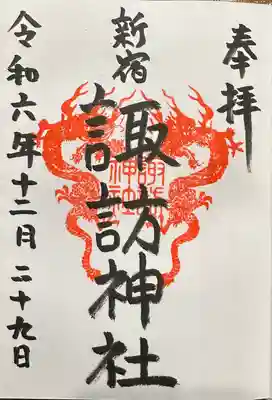 奉拝
新宿
諏訪神社
諏訪
神社
令和六年十二月二十九日